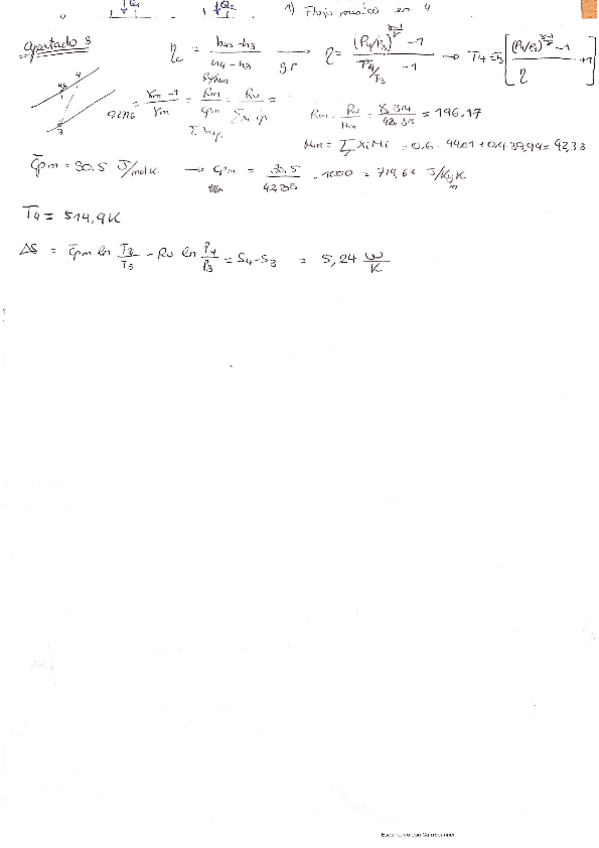 Q₁ Q₂ 1) Flujo masico en 4
Apartado 3
η_c = (h4s - h3)/(h4 - h3) → gp η = ((P4/P3)^((γ-1)/γ) - 1)/(T4/T3 - 1) → T4 = T3 [((P4/P3)^((γ-1)/γ) - 1)/η + 1]
= (γm - 1)/γm = Rm/cpm = Ru/ = Rm = Ru/Mm = 8,314/42,38 = 196,17
Mm = Σ Xi Mi = 0,6 · 44,01 + 0,4 · 39,94 = 42,38
C̄pm = 30,5 J/molK → Cpm = 30,5/42,38 · 1000 = 719,68 J/KgK
T4 = 514,9K
ΔS = C̄pm ln T2/T3 - Ru ln P4/P3 = S4 - S3 = 5,24 W/K
Escaneado con CamScanner